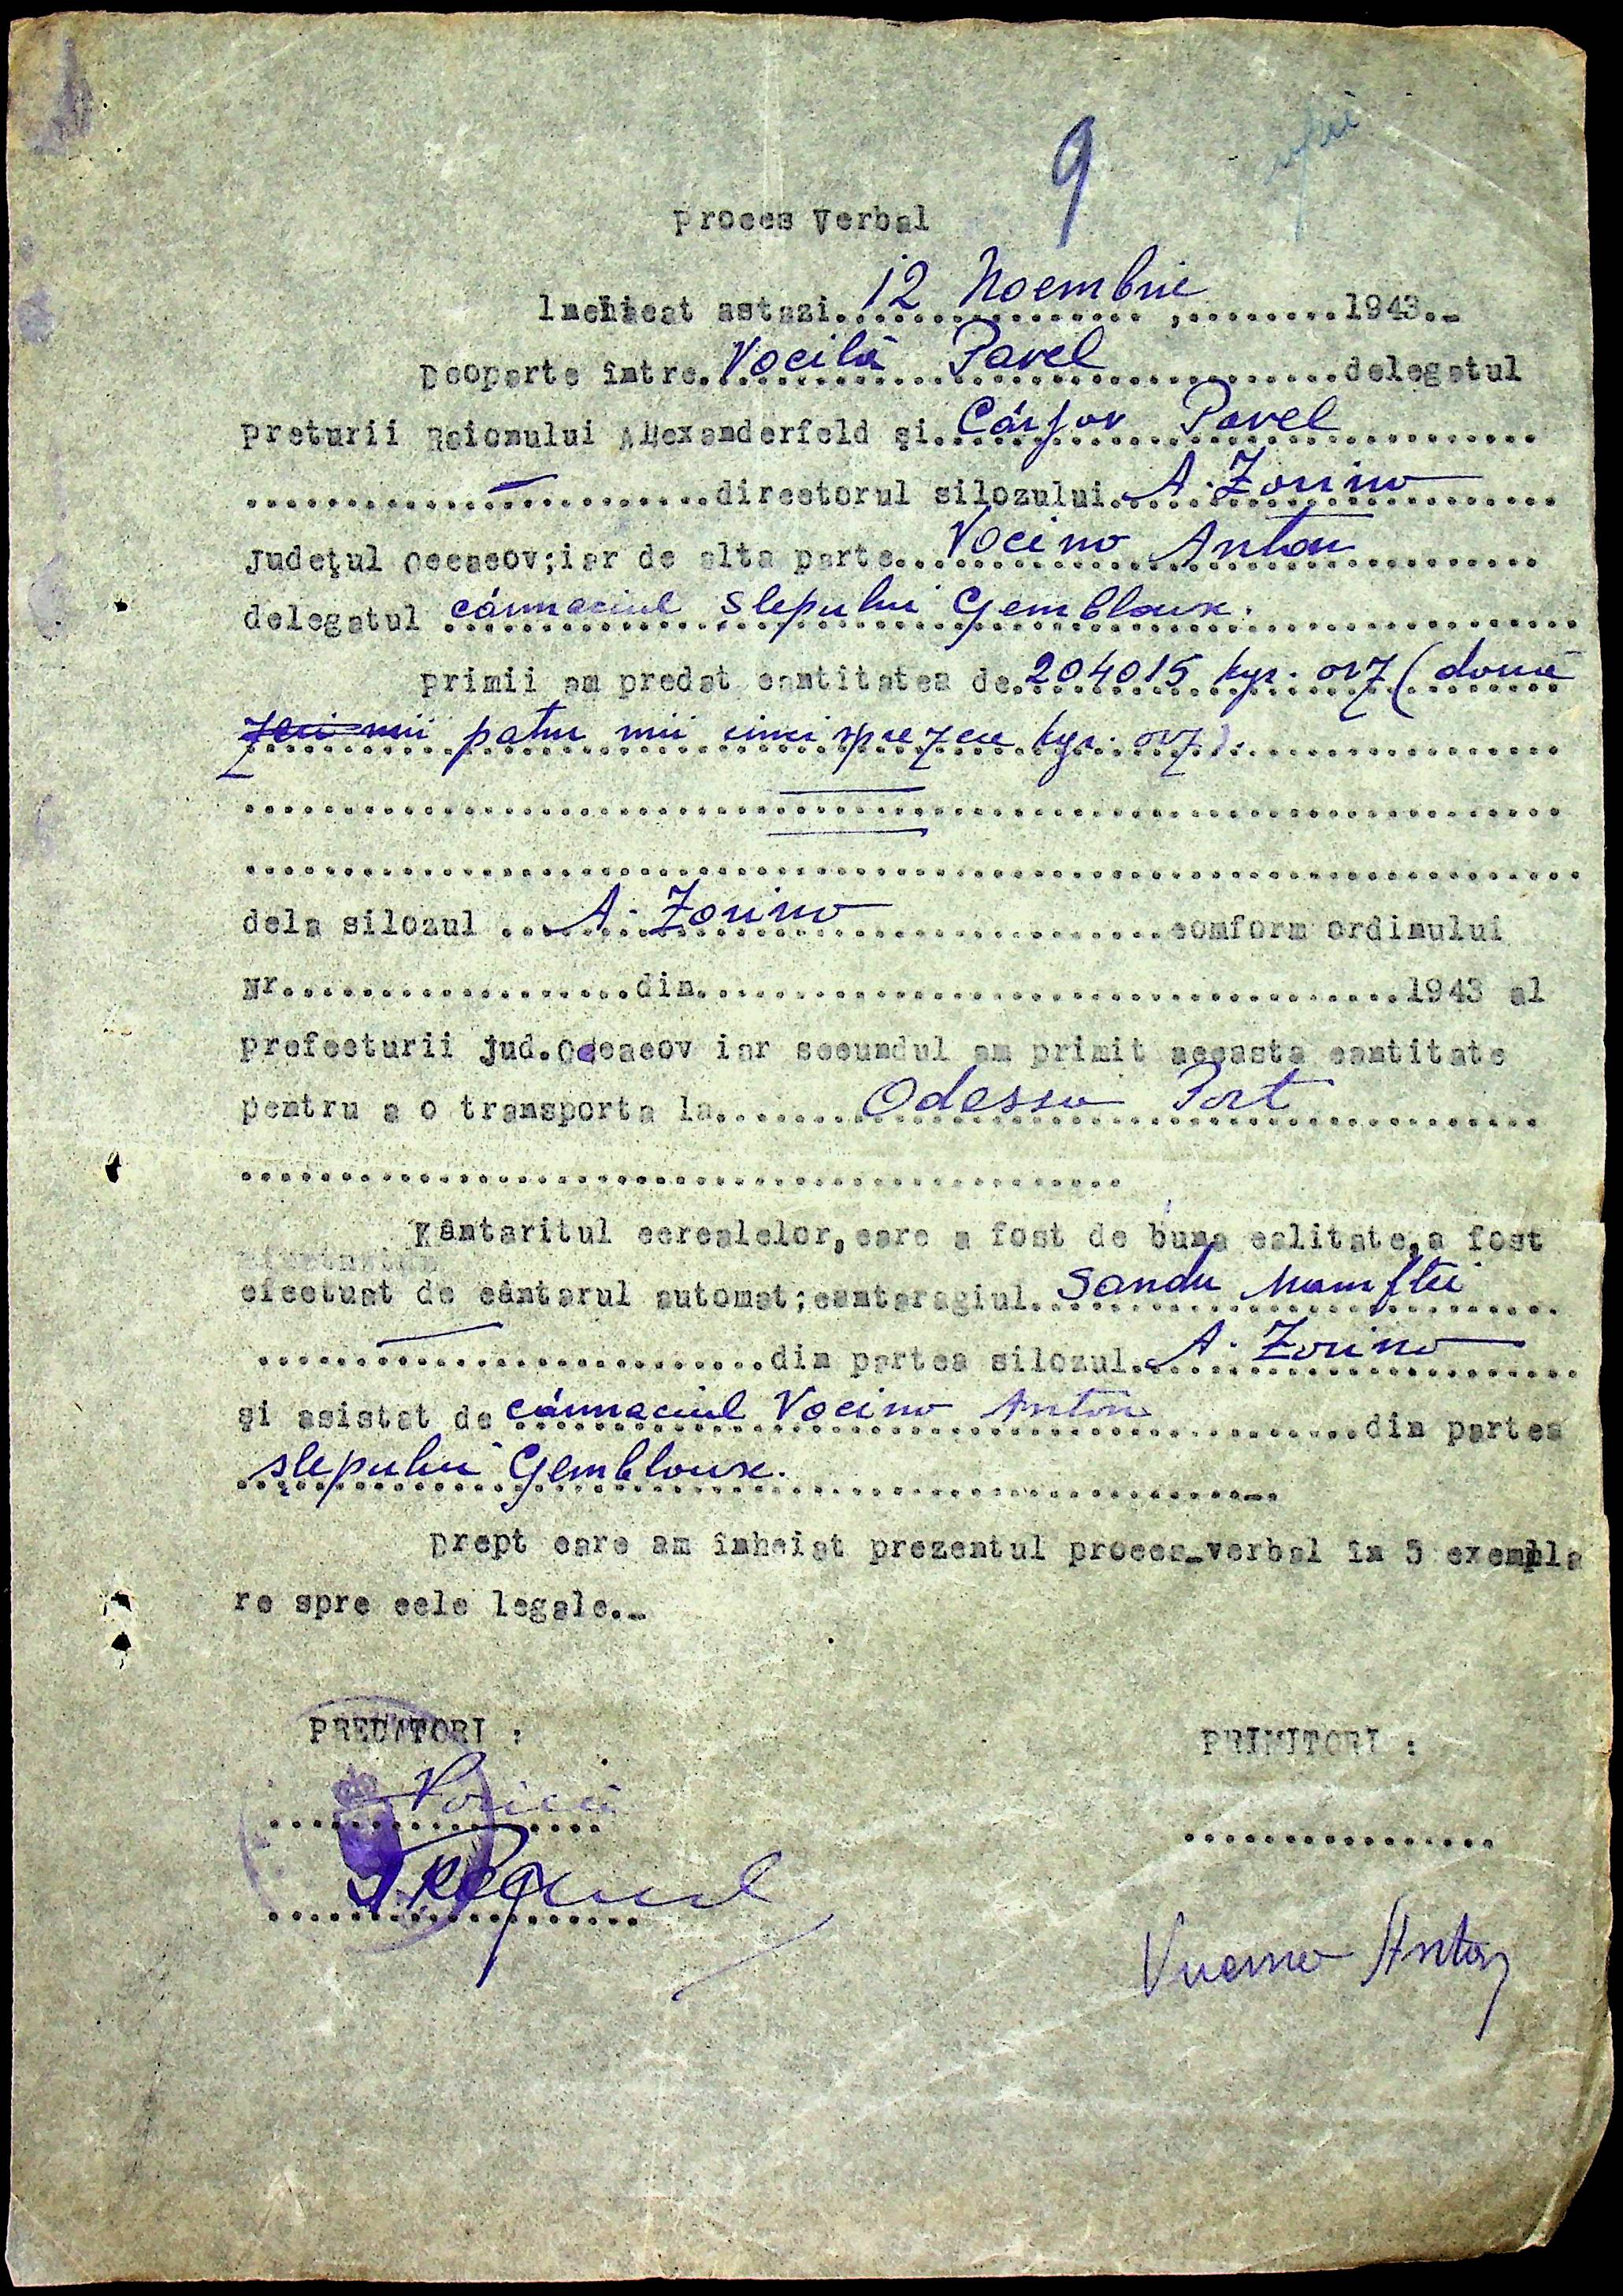 9
Proces Verbal
Incheieat astazi. 12 Noembrie ,.........1943.-
Deoparte între. Vocilă Pavel delegatul
Preturii Raionului Alexanderfeld şi. Cârjov Pavel
directorul silozului. A. Zorino
Judeţul Oceacov;iar de alta parte. Vocino Anton
delegatul cârmaciul slepului Gembloux.
Primii am predat cantitatea de. 204015 kgr. orz ( două
zeci mii patru mii cincisprezece kgr. orz ).
dela silozul ... A. Zorino conform ordinului
Nr.....................din.....................1943 al
prefecturii jud.Oceacov iar secundul am primit aceasta cantitate
pentru a o transporta la....... Odessa Port
Kântaritul cerealelor,care a fost de buna calitate,a fost
efectuat de cântarul automat;cantaragiul. Sandu Namftei
din partea silozul. A. Zorino
şi asistat de cârmaciul Vocino Anton din partea
şlepului Gembloux.
Drept care am înheiat prezentul proces-verbal în 5 exempla
re spre cele legale.-
PREDATORI : PRIMITORI :
Anton